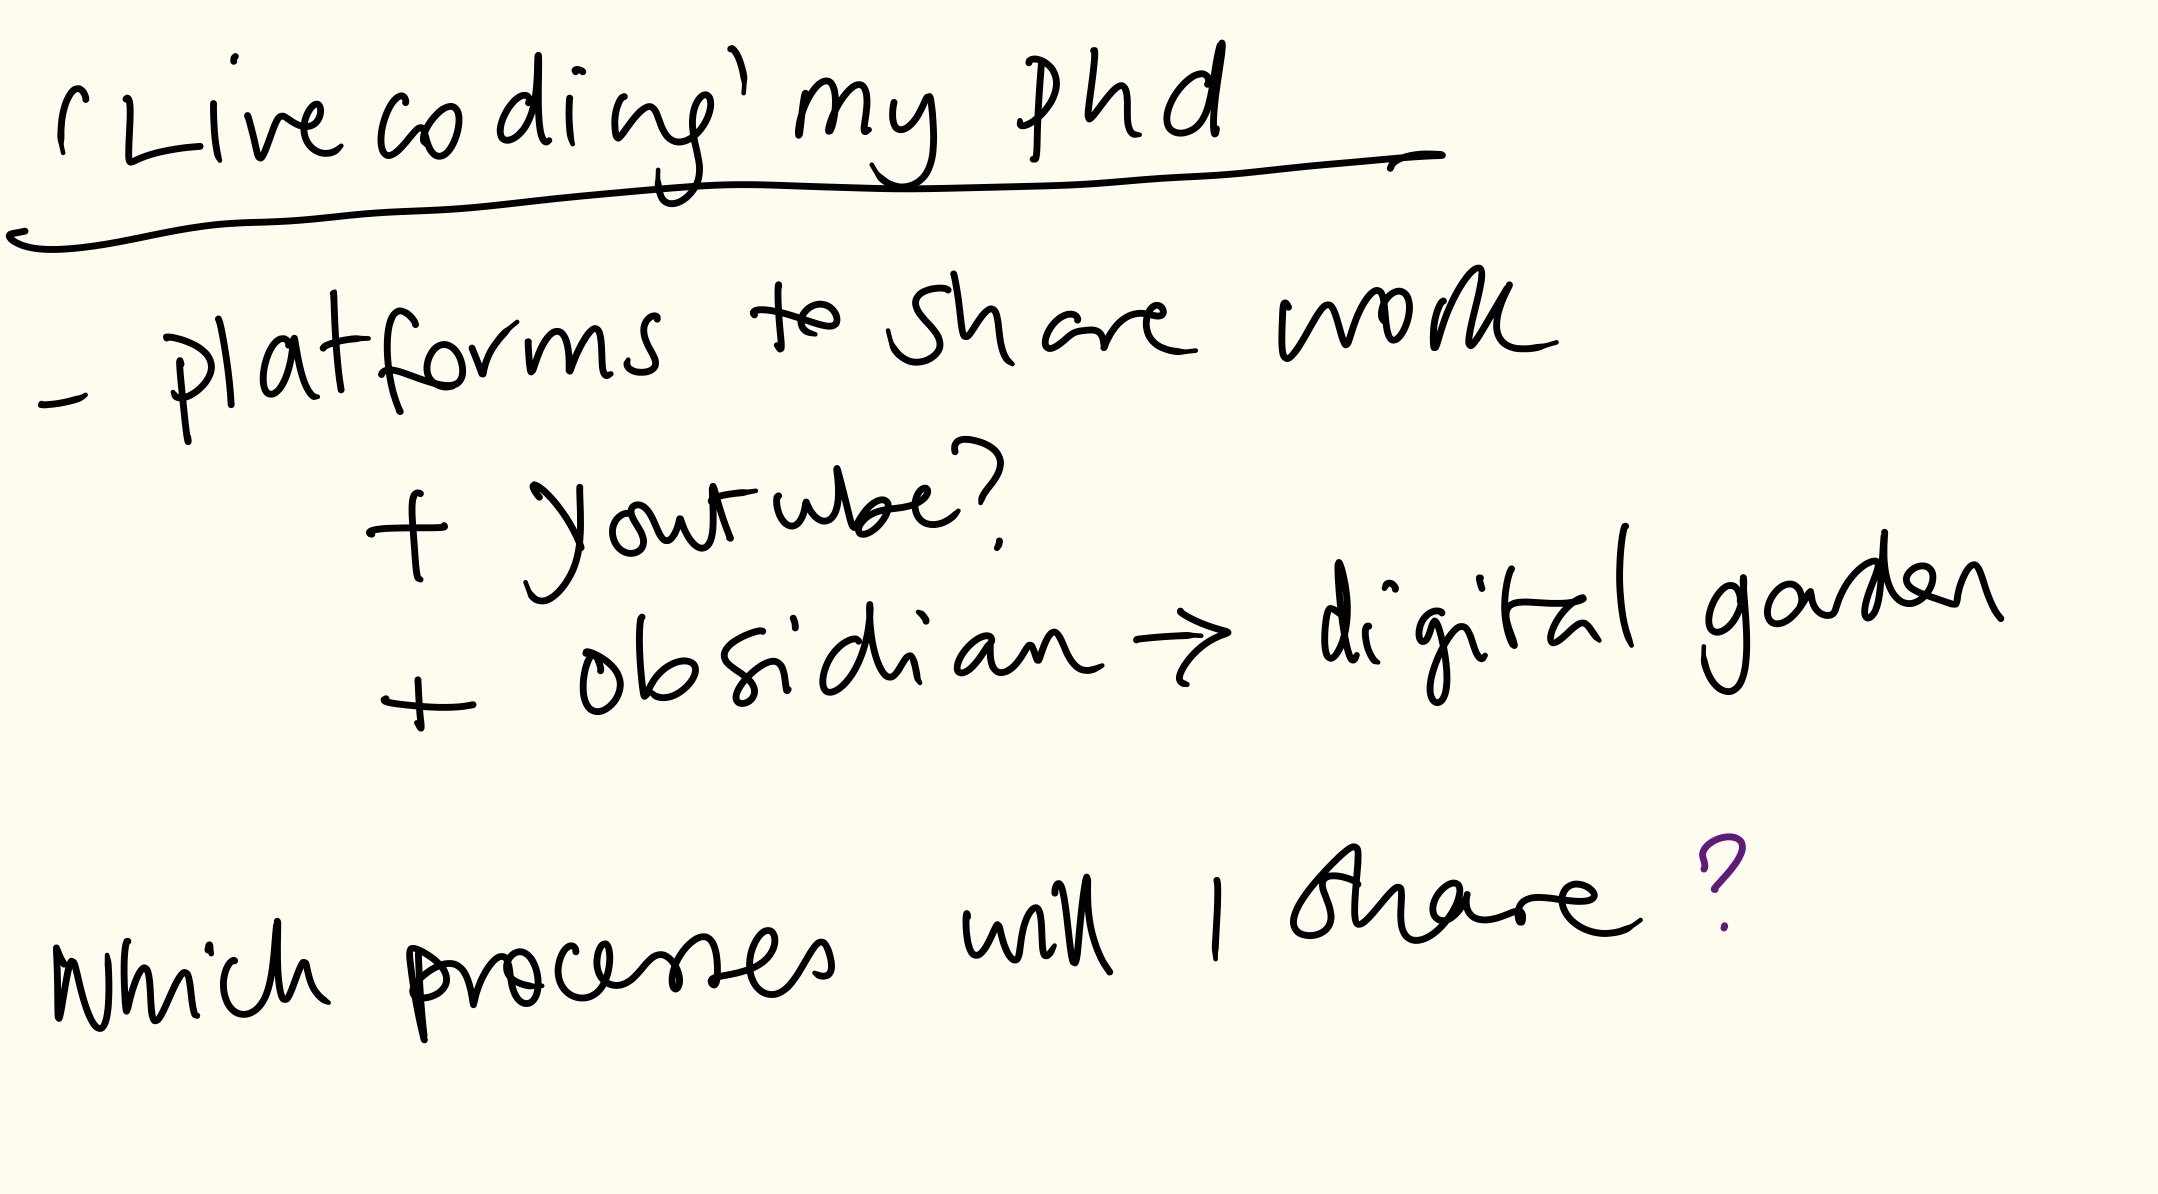 'Livecoding' my phd
- platforms to share work
+ youtube?
+ obsidian → digital garden
Which processes will I share ?